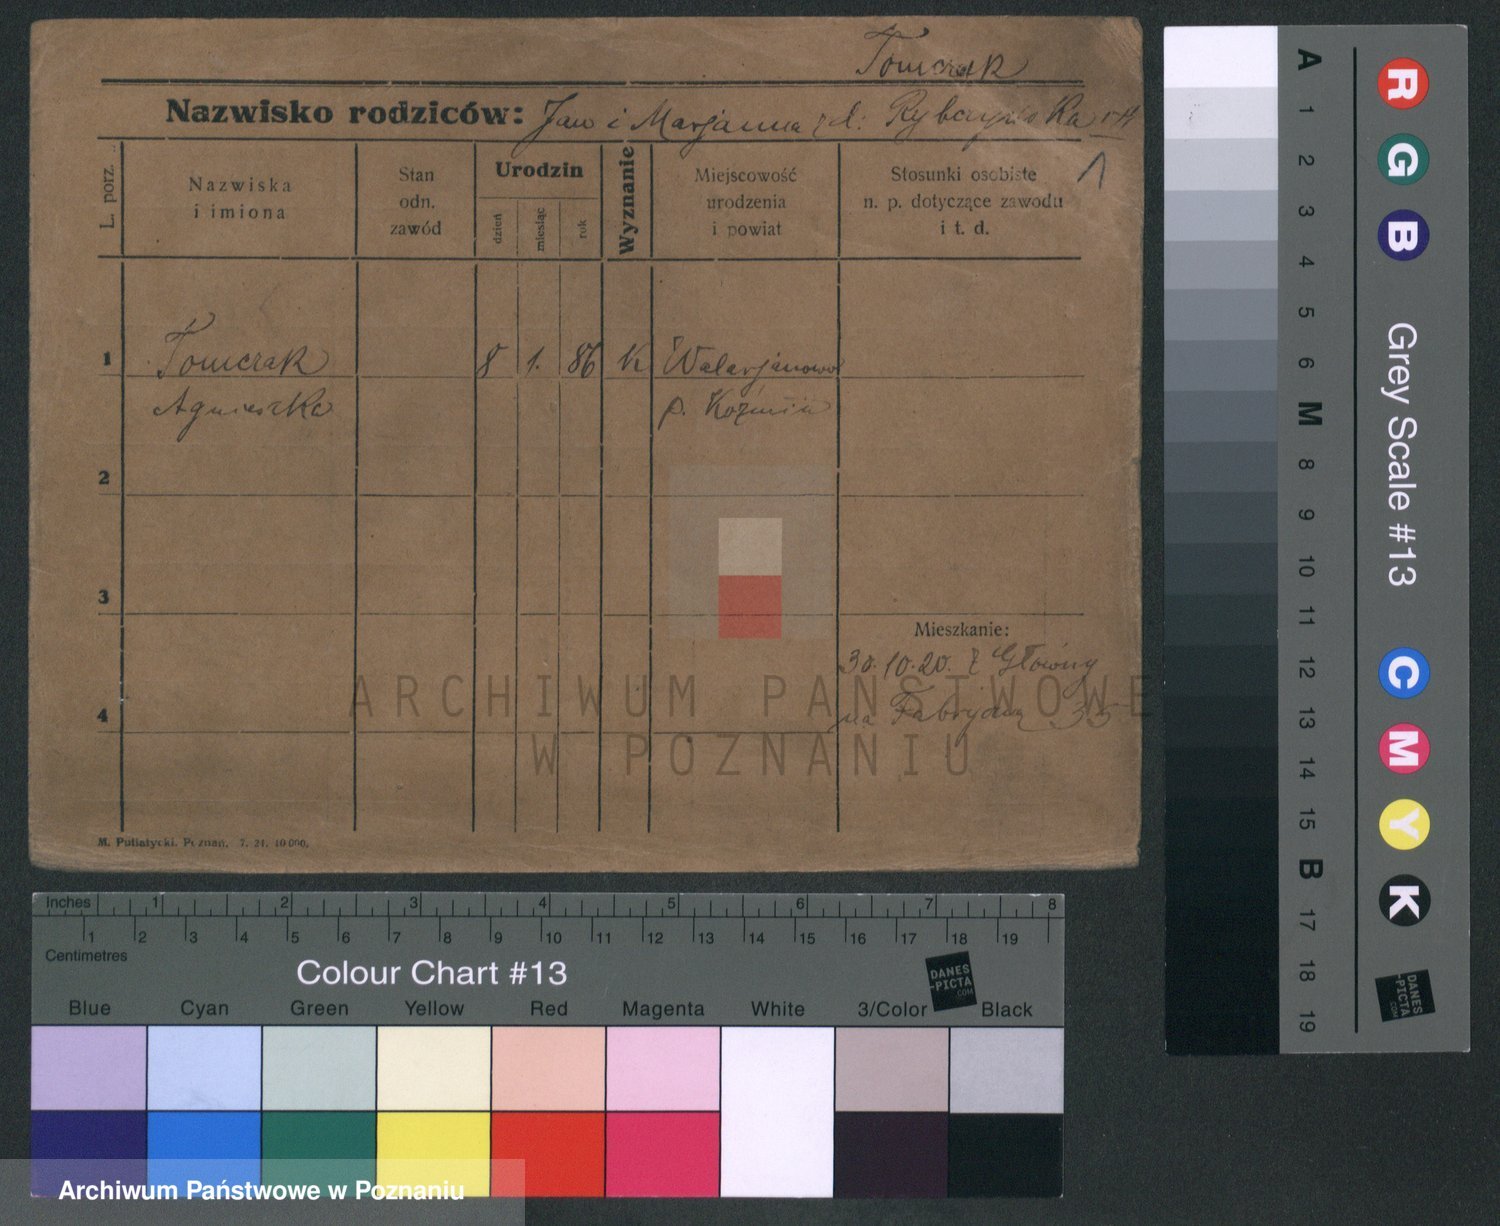 Tomczak
Nazwisko rodziców: Jan i Marjanna zd: Rybczyńska
L. porz.
Nazwiska
i imiona
Stan
odn.
zawód
Urodzin
dzień
miesiąc
rok
Wyznanie
Miejscowość
urodzenia
i powiat
Stosunki osobiste
n. p. dotyczące zawodu
i t. d.
1
Tomczak
8 1. 86 K Walerjanowo
Agnieszka
p. Koźmin
2
3
Mieszkanie:
30.10.20. z Główny
4
na Fabryczną 35
ARCHIWUM PAŃSTWOWE
W POZNANIU
M. Putiatycki. Poznań. 7. 21. 10 000.
Inches 1 2 3 4 5 6 7 8
1 2 3 4 5 6 7 8 9 10 11 12 13 14 15 16 17 18 19
Centimetres
Colour Chart #13
DANES
-PICTA
.COM
Blue Cyan Green Yellow Red Magenta White 3/Color Black
Archiwum Państwowe w Poznaniu
A 1 2 3 4 5 6 M 8 9 10 11 12 13 14 15 B 17 18 19
R G B Grey Scale #13 C M Y K
DANES
-PICTA
.COM